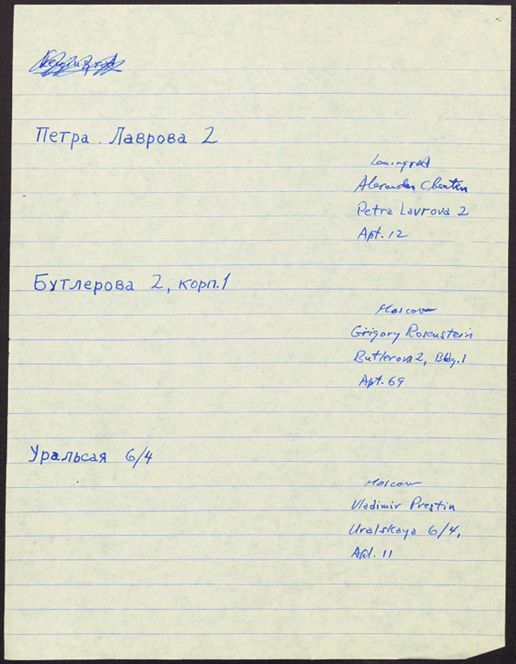 Петра Лаврова 2
Leningrad
Alexander
Petra Lavrova 2
Apt. 12
Бутлерова 2, корп.1
Moscow
Grigory Rosenstein
Butlerova 2, Bldg. 1
Apt. 69
Уральсая 6/4
Moscow
Vladimir Prestin
Uralskaya 6/4,
Apt. 11